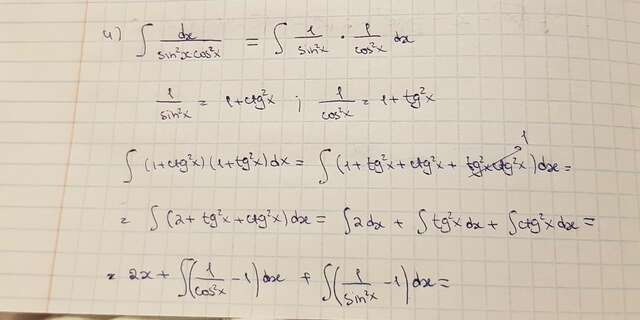 u) ∫ dx/(sin²x cos²x) = ∫ 1/sin²x · 1/cos²x dx
1/sin²x = 1+ctg²x ; 1/cos²x = 1+tg²x
∫ (1+ctg²x)(1+tg²x)dx = ∫ (1+tg²x+ctg²x+tg²x ctg²x)dx = 1
= ∫ (2+tg²x+ctg²x)dx = ∫2dx + ∫tg²x dx + ∫ctg²x dx =
= 2x + ∫(1/cos²x - 1)dx + ∫(1/sin²x - 1)dx =